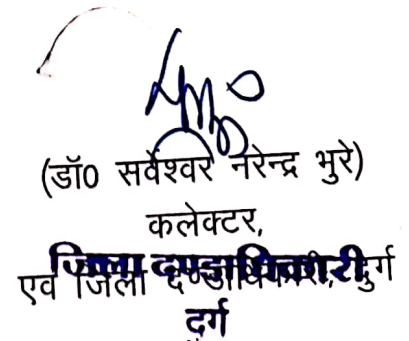 (डॉ0 सर्वेश्वर नरेन्द्र भुरे)
कलेक्टर,
जिला दण्डाधिकारी
एवं जिला दण्डाधिकारी, दुर्ग
दुर्ग